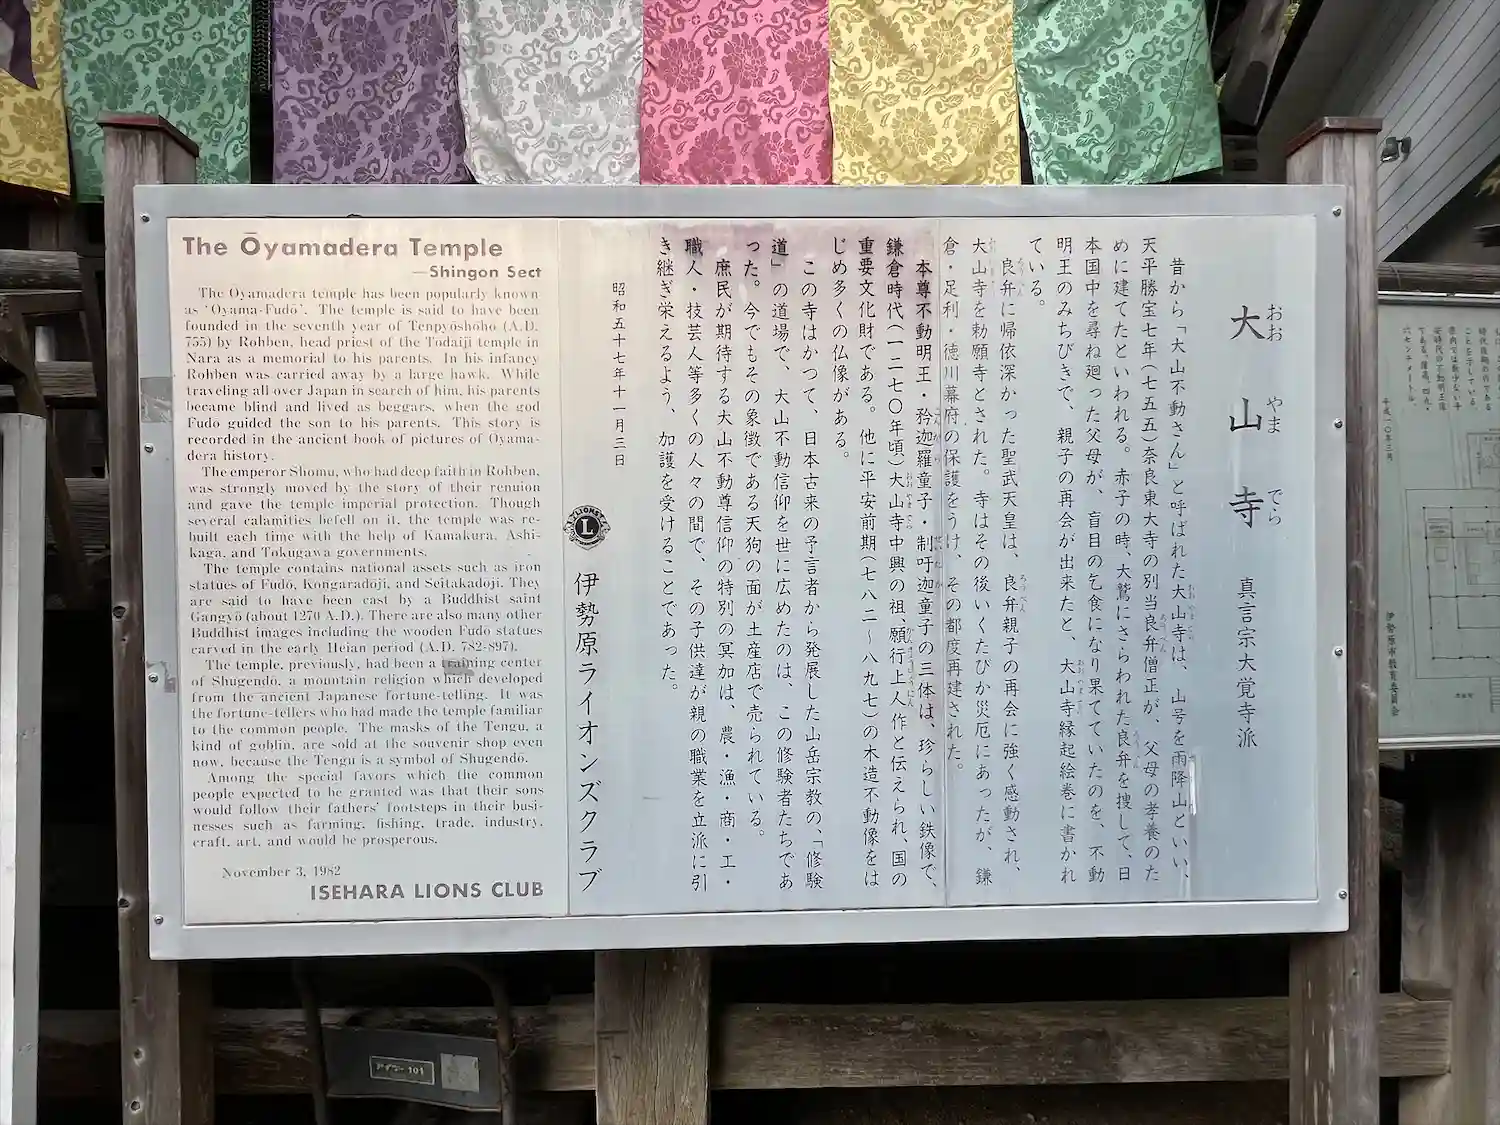 The Ōyamadera Temple
—Shingon Sect
The Ōyamadera temple has been popularly known
as 'Oyama-Fudō'. The temple is said to have been
founded in the seventh year of Tenpyōshōho (A.D.
755) by Rohben, head priest of the Tōdaiji temple in
Nara as a memorial to his parents. In his infancy
Rohben was carried away by a large hawk. While
traveling all over Japan in search of him, his parents
became blind and lived as beggars, when the god
Fudō guided the son to his parents. This story is
recorded in the ancient book of pictures of Oyama-
dera history.
The emperor Shomu, who had deep faith in Rohben,
was strongly moved by the story of their reunion
and gave the temple imperial protection. Though
several calamities befell on it, the temple was re-
built each time with the help of Kamakura, Ashi-
kaga, and Tokugawa governments.
The temple contains national assets such as iron
statues of Fudō, Kongaradōji, and Seitakadōji. They
are said to have been cast by a Buddhist saint
Gangyō (about 1270 A.D.). There are also many other
Buddhist images including the wooden Fudō statues
carved in the early Heian period (A.D. 782-897).
The temple, previously, had been a training center
of Shugendō, a mountain religion which developed
from the ancient Japanese fortune-telling. It was
the fortune-tellers who had made the temple familiar
to the common people. The masks of the Tengu, a
kind of goblin, are sold at the souvenir shop even
now, because the Tengu is a symbol of Shugendō.
Among the special favors which the common
people expected to be granted was that their sons
would follow their fathers' footsteps in their busi-
nesses such as farming, fishing, trade, industry,
craft, art, and would be prosperous.
November 3, 1982
ISEHARA LIONS CLUB
大山寺 真言宗大覚寺派
おお やま でら
昔から「大山不動さん」と呼ばれた大山寺は、山号を雨降山といい、
天平勝宝七年(七五五)奈良東大寺の別当良弁僧正が、父母の孝養のた
めに建てたといわれる。赤子の時、大鷲にさらわれた良弁を捜して、日
本国中を尋ね廻った父母が、盲目の乞食になり果てていたのを、不動
明王のみちびきで、親子の再会が出来たと、大山寺縁起絵巻に書かれ
ている。
良弁に帰依深かった聖武天皇は、良弁親子の再会に強く感動され、
大山寺を勅願寺とされた。寺はその後いくたびか災厄にあったが、鎌
倉・足利・徳川幕府の保護をうけ、その都度再建された。
本尊不動明王・矜迦羅童子・制吒迦童子の三体は、珍らしい鉄像で、
鎌倉時代(一二七〇年頃)大山寺中興の祖、願行上人作と伝えられ、国の
重要文化財である。他に平安前期(七八二〜八九七)の木造不動像をは
じめ多くの仏像がある。
この寺はかつて、日本古来の予言者から発展した山岳宗教の、「修験
道」の道場で、大山不動信仰を世に広めたのは、この修験者たちであ
った。今でもその象徴である天狗の面が土産店で売られている。
庶民が期待する大山不動尊信仰の特別の冥加は、農・漁・商・工・
職人・技芸人等多くの人々の間で、その子供達が親の職業を立派に引
き継ぎ栄えるよう、加護を受けることであった。
昭和五十七年十一月三日
LIONS
L
伊勢原ライオンズクラブ
平成一〇年三月
伊勢原市教育委員会